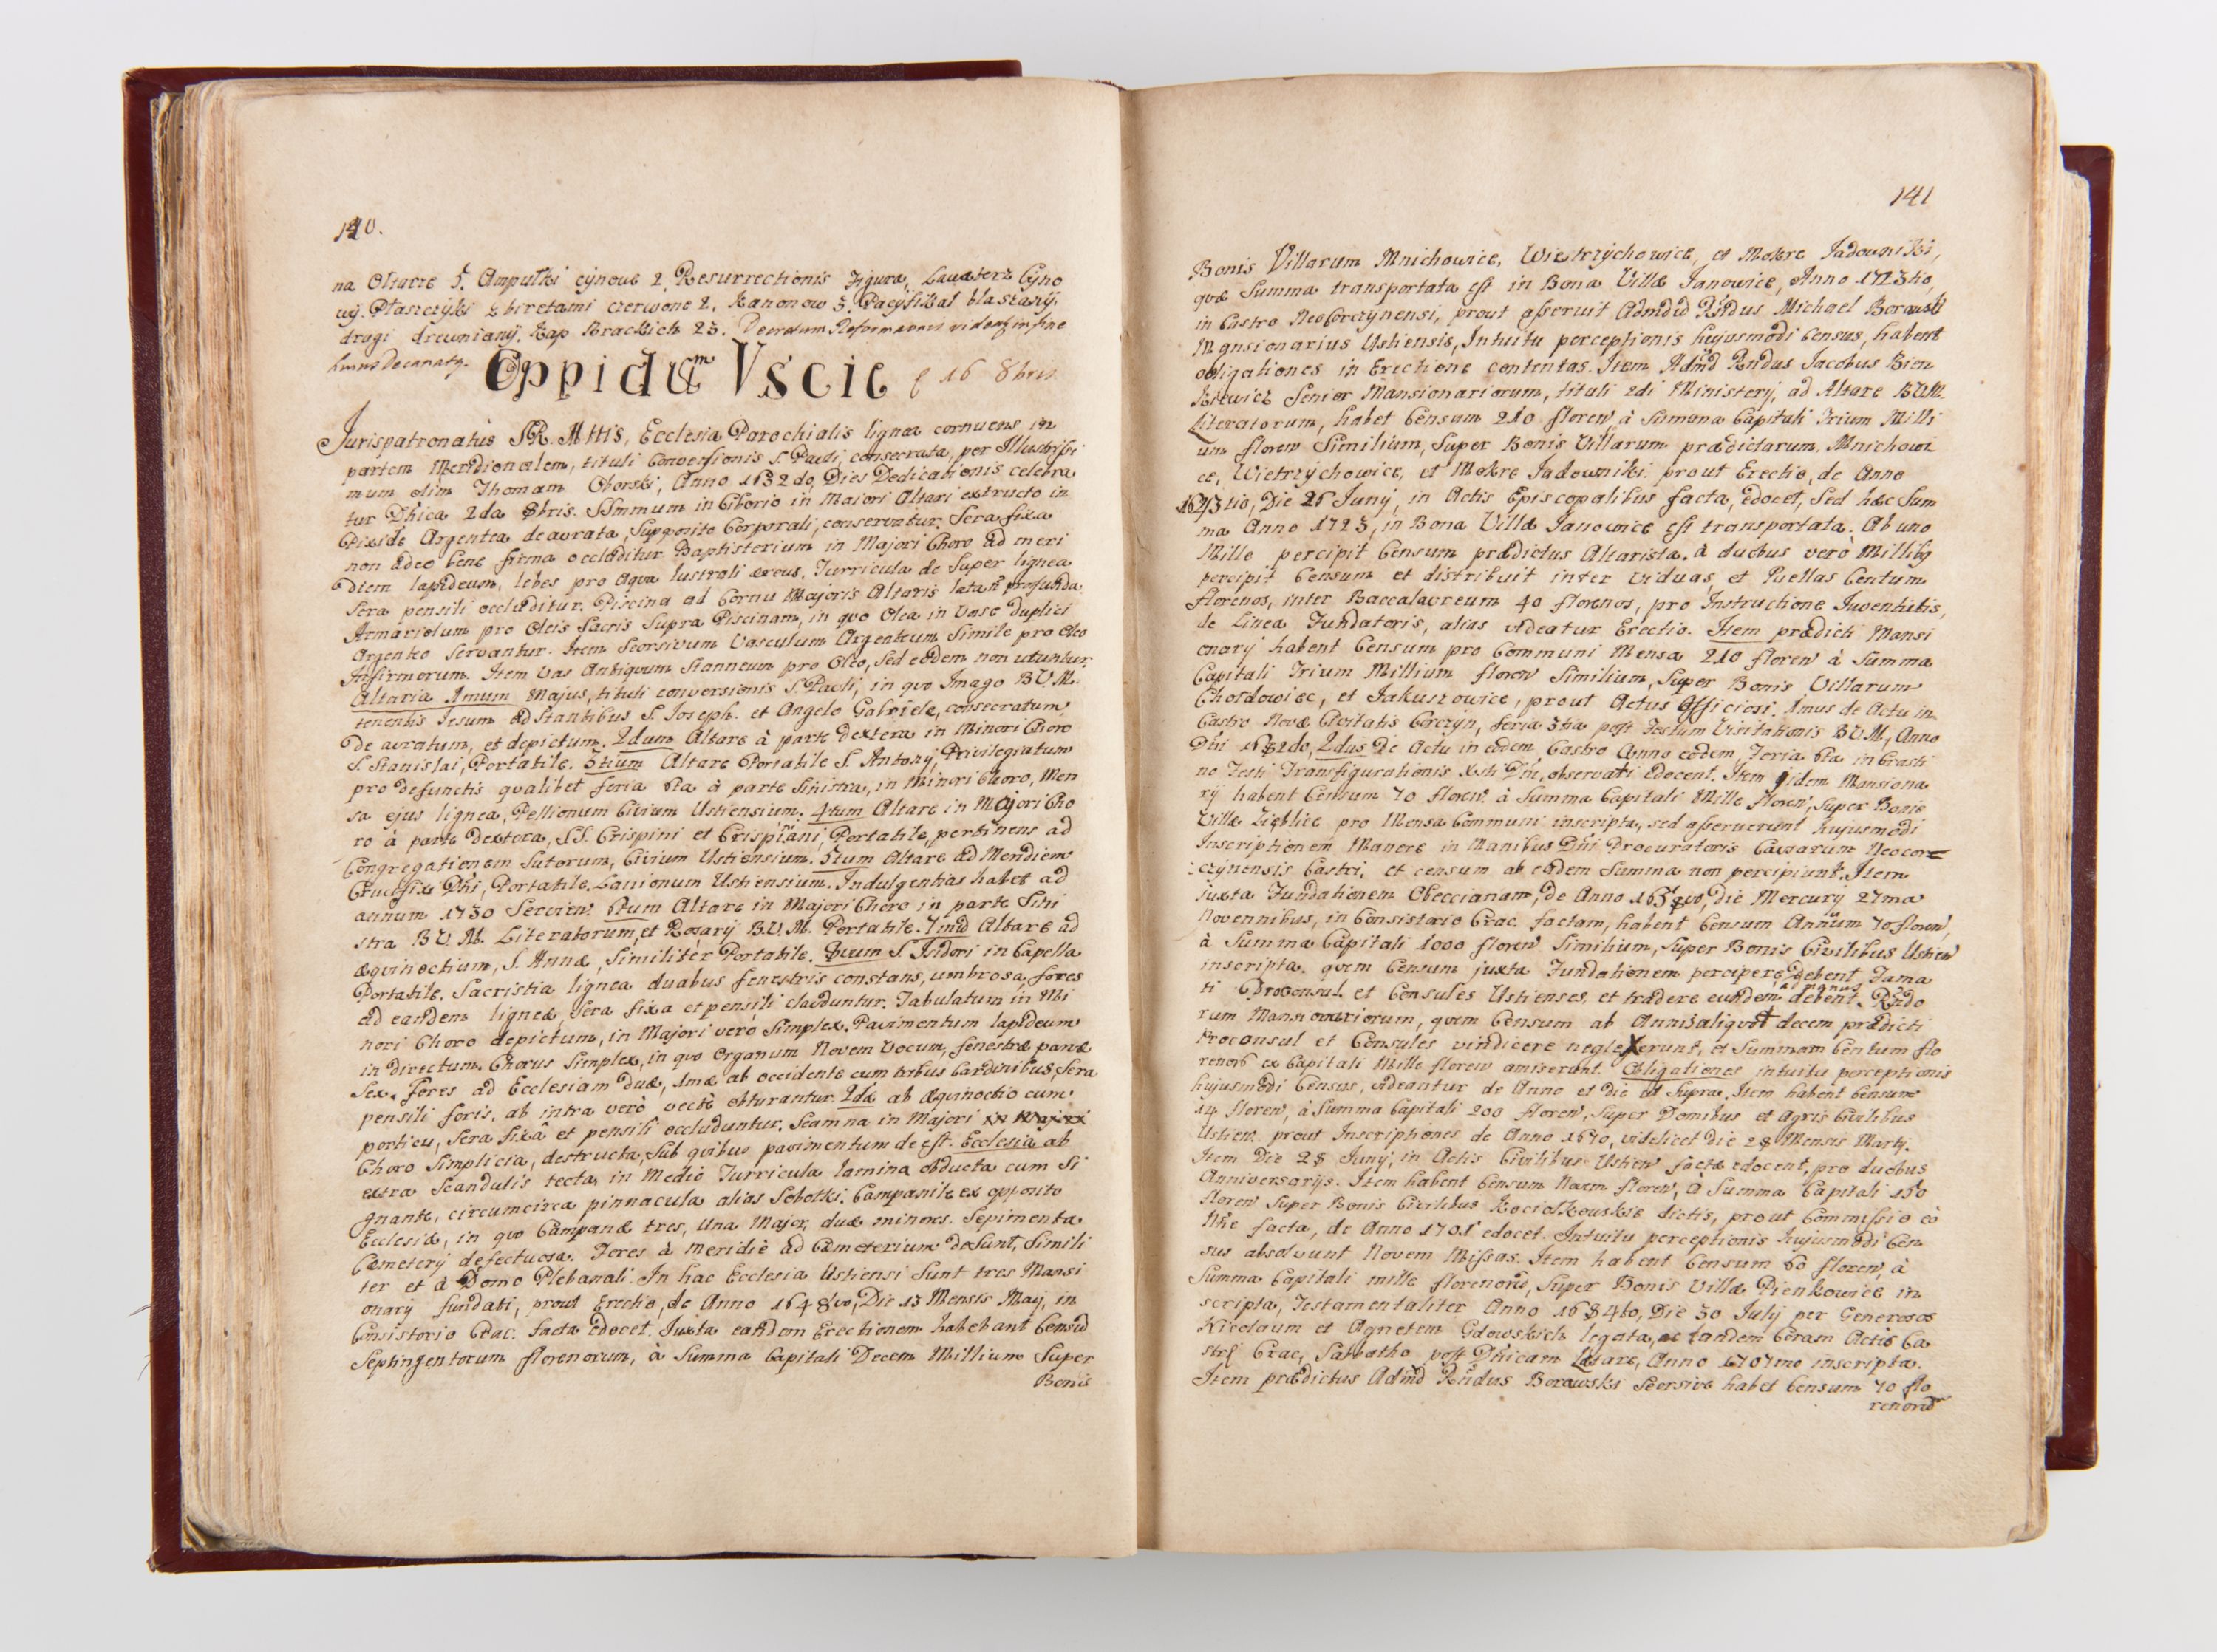 140.
na Ołtarze 5. Ampułki cynowe 2. Resurrectionis Figura, Lavaterz Cyno
wy. Płaszczyki z biretami czerwone 2. Kanonow 3. Pacyfikał blaszany,
drugi drewniany. Kap Brackich 23. Decretum Reformationis videatur in fine
huius Decanatg.
Oppidum Vscie 16 8bris
Jurispatronatus SR. Mttis, Ecclesia Parochialis lignea cornuens in
partem Meridionalem, tituli Conversionis S. Pauli, consecrata, per Illustrissi
mum olim Thomam Oborski, Anno 1632do, Dies Dedicationis celebra
tur Dnica 2da 8bris. SSmmum in Ciborio in Maiori Altari extructo in
Pixide Argentea deaurata, Supposito Corporali, conservatur. Sera fixa
non adeo bene firma occluditur. Baptisterium in Majori Choro ad meri
diem lapideum, lebes pro aqva lustrali ereus, Turricula de Super lignea
Sera pensili occluditur. Piscina ad Cornu Majoris Altaris lata et profunda
Armariolum pro Oleis Sacris Supra Piscinam, in qvo Olea in Vase duplici
Argenteo Servantur. Item Seorsivum Vasculum Argenteum Simile pro Oleo
Infirmorum. Item Vas Antiqvum Stanneum pro Oleo, Sed eodem non utuntur.
Altaria Amum Majus, tituli conversionis S. Pauli, in qvo Imago B.V.M.
tenentis Jesum adstantibus S. Joseph. et Angelo Gabriele, consecratum
de auratum, et depictum. 2dum Altare à parte dextera in Minori Choro
S. Stanislai, Portatile. 3tium Altare Portatile S. Antonij, Privilegiatum
pro defunctis qvalibet feria 2da à parte Sinistra, in Minori Choro, Men
sa ejus lignea, Pellionum Civium Ustiensium. 4tum Altare in Majori Cho
ro à parte dextera, SS. Crispini et Crispiani, Portatile, pertinens ad
Congregationem Sutorum, Civium Ustiensium. 5tum Altare ad Meridiem
Crucifixi Dni, Portatile. Lanionum Ustiensium. Indulgentias habet ad
annum 1730 Servien. 6tum Altare in Majori Choro in parte Sini
stra B.V.M. Literatorum, et Rosarij B.V.M. Portatile. 7mum Altare ad
æqvinoctium, S. Annæ, Similiter Portatile. 8vum S. Isidori in Capella
Portatile. Sacristia lignea duabus fenestris constans, umbrosa, fores
ad eandem ligneæ Sera fixa et pensili clauduntur. Tabulatum in Mi
nori Choro depictum, in Majori vero Simplex. Pavimentum lapideum
in directum. Chorus Simplex, in qvo Organum Novem Vocum, fenestræ parvæ
Sex. Fores ad Ecclesiam duæ, 1mæ ab occidente cum tribus Cardinibus, Sera
pensili foris, ab intra verò vecte obturantur. 2dæ ab Æqvinoctio cum
porticu, Sera fixa et pensili occluduntur. Scamna in Majori in Majori
Choro Simplicia, destructa, Sub qvibus pavimentum deest. Ecclesia ab
extra Scandulis tecta, in Medio Turricula lamina obducta cum Si
gnante, circumcirca pinnacula alias Sobotki. Campanile ex opposito
Ecclesiæ, in qvo Campanæ tres, Una Major, duæ minores. Sepimenta
Cæmeterij defectuosa. Fores à meridiè ad Cæmeterium desunt, Simili
ter et à Domo Plebanali. In hac Ecclesia Ustiensi Sunt tres Mansi
onarij fundati, prout Erectio, de Anno 1648vo, Die 13 Mensis Maij, in
Consistorio Crac. facta edocet. Juxta eandem Erectionem habebant Censum
Septingentorum florenorum, à Summa Capitali Decem Millium Super
Bonis
141
Bonis Villarum Mnichowice, Wietrzychowice, et Mokre Jadowniki,
qvæ Summa transportata est in Bona Villæ Janowice, Anno 1723tio,
in Castro Neocorczynensi, prout asseruit Admdũ Rndus Michael Borawski
Mansionarius Ustiensis, Intuitu perceptionis hujusmodi Census, habent
obligationes in Erectione contentas. Item Admd Rndus Jacobus Bien
kiewicz Senior Mansionariorum, tituli 2di Ministerij, ad Altare B.V.M.
Literatorum, habet Censum 210 floren, à Summa Capitali Trium Milli
um floren Similium, Super Bonis Villarum prædictarum Mnichowi
ce, Wietrzychowice, et Mokre Jadowniki prout Erectio, de Anno
1643tio, Die 26 Junij, in Actis Episcopalibus facta, edocet, Sed hæc Sum
ma Anno 1723, in Bona Villæ Janowice est transportata. Ab uno
Mille percipit Censum prædictus Altarista. à duobus verò Millibg
percipit Censum et distribuit inter Viduas, et Puellas Centum
florenos, inter Baccalaureum 40 florenos, pro Instructione Juventutis,
de Linea Fundatoris, alias videatur Erectio. Item prædicti Mansi
onarij habent Censum pro Communi Mensa 210 floren à Summa
Capitali Trium Millium floren Similium, Super Bonis Villarum
Chordowiec, et Jakuszowice, prout Actus Officiosi. 1mus de Actu in
Castro Novæ Civitatis Corczyn, feria 3tia post Festum Visitationis B.V.M, Anno
Dni 1682do, 2dus de Actu in eodem Castro Anno eodem, Feria 6ta in Crasti
no Festi Transfigurationis Xsti Dni, observati edocent. Item ijdem Mansiona
rij habent Censum 70 floren. à Summa Capitali Mille floren, Super Bonis
Villæ Zięblice pro Mensa Communi inscripta, sed asseruerunt hujusmodi
Inscriptionem Manere in Manibus Dni Procuratoris Causarum Neocor=
czynensis Castri, et censum ab eadem Summa non percipiunt. Item
juxta Fundationem Obeccianam, de Anno 1658vo, Die Mercurij 27ma
Novembris, in Consistorio Crac. factam, habent Censum Annuum 70 floren,
à Summa Capitali 1000 floren Similium, Super Bonis Civilibus Ustien
inscripta. qvem Censum juxta Fundationem percipere debent Fama
ti Proconsul et Consules Ustienses, et tradere eundem ad manus debent Rndo
rum Mansionariorum, qvem Censum ab Annis aliqvot decem prædicti
Proconsul et Consules vindicare neglexerunt, et Summam Centum flo
renos ex Capitali Mille floren amiserunt. Obligationes intuitu perceptionis
hujusmodi Census, videantur de Anno et die ut Supra. Item habent Censum
14 floren, à Summa Capitali 200 floren, Super Domibus et Agris Civilibus
Ustien. prout Inscriptiones de Anno 1670, videlicet die 28 Mensis Martij.
Item Die 28 Junij, in Actis Civilibus Ustien factæ edocent, pro duobus
Anniversarijs. Item habent Censum Novem floren, à Summa Capitali 150
floren Super Bonis Civilibus Kociołkowskie dictis, prout Commissio eò
Nne facta, de Anno 1701 edocet. Intuitu perceptionis hujusmodi Cen
sus absolvunt Novem Missas. Item habent Censum 60 floren, à
Summa Capitali mille florenorũ, Super Bonis Villæ Pienkowice in
scripta, Testamentaliter Anno 1684to, Die 30 Julij per Generosos
Nicolaum et Agnetem Gdowskich legata, ac tandem Coram Actis Ca
str Crac, Sabbatho post Dnicam Lætare, Anno 1707mo inscripta.
Item prædictus Admd Rndus Borawski Seorsive habet Censum 70 flo
renorũ